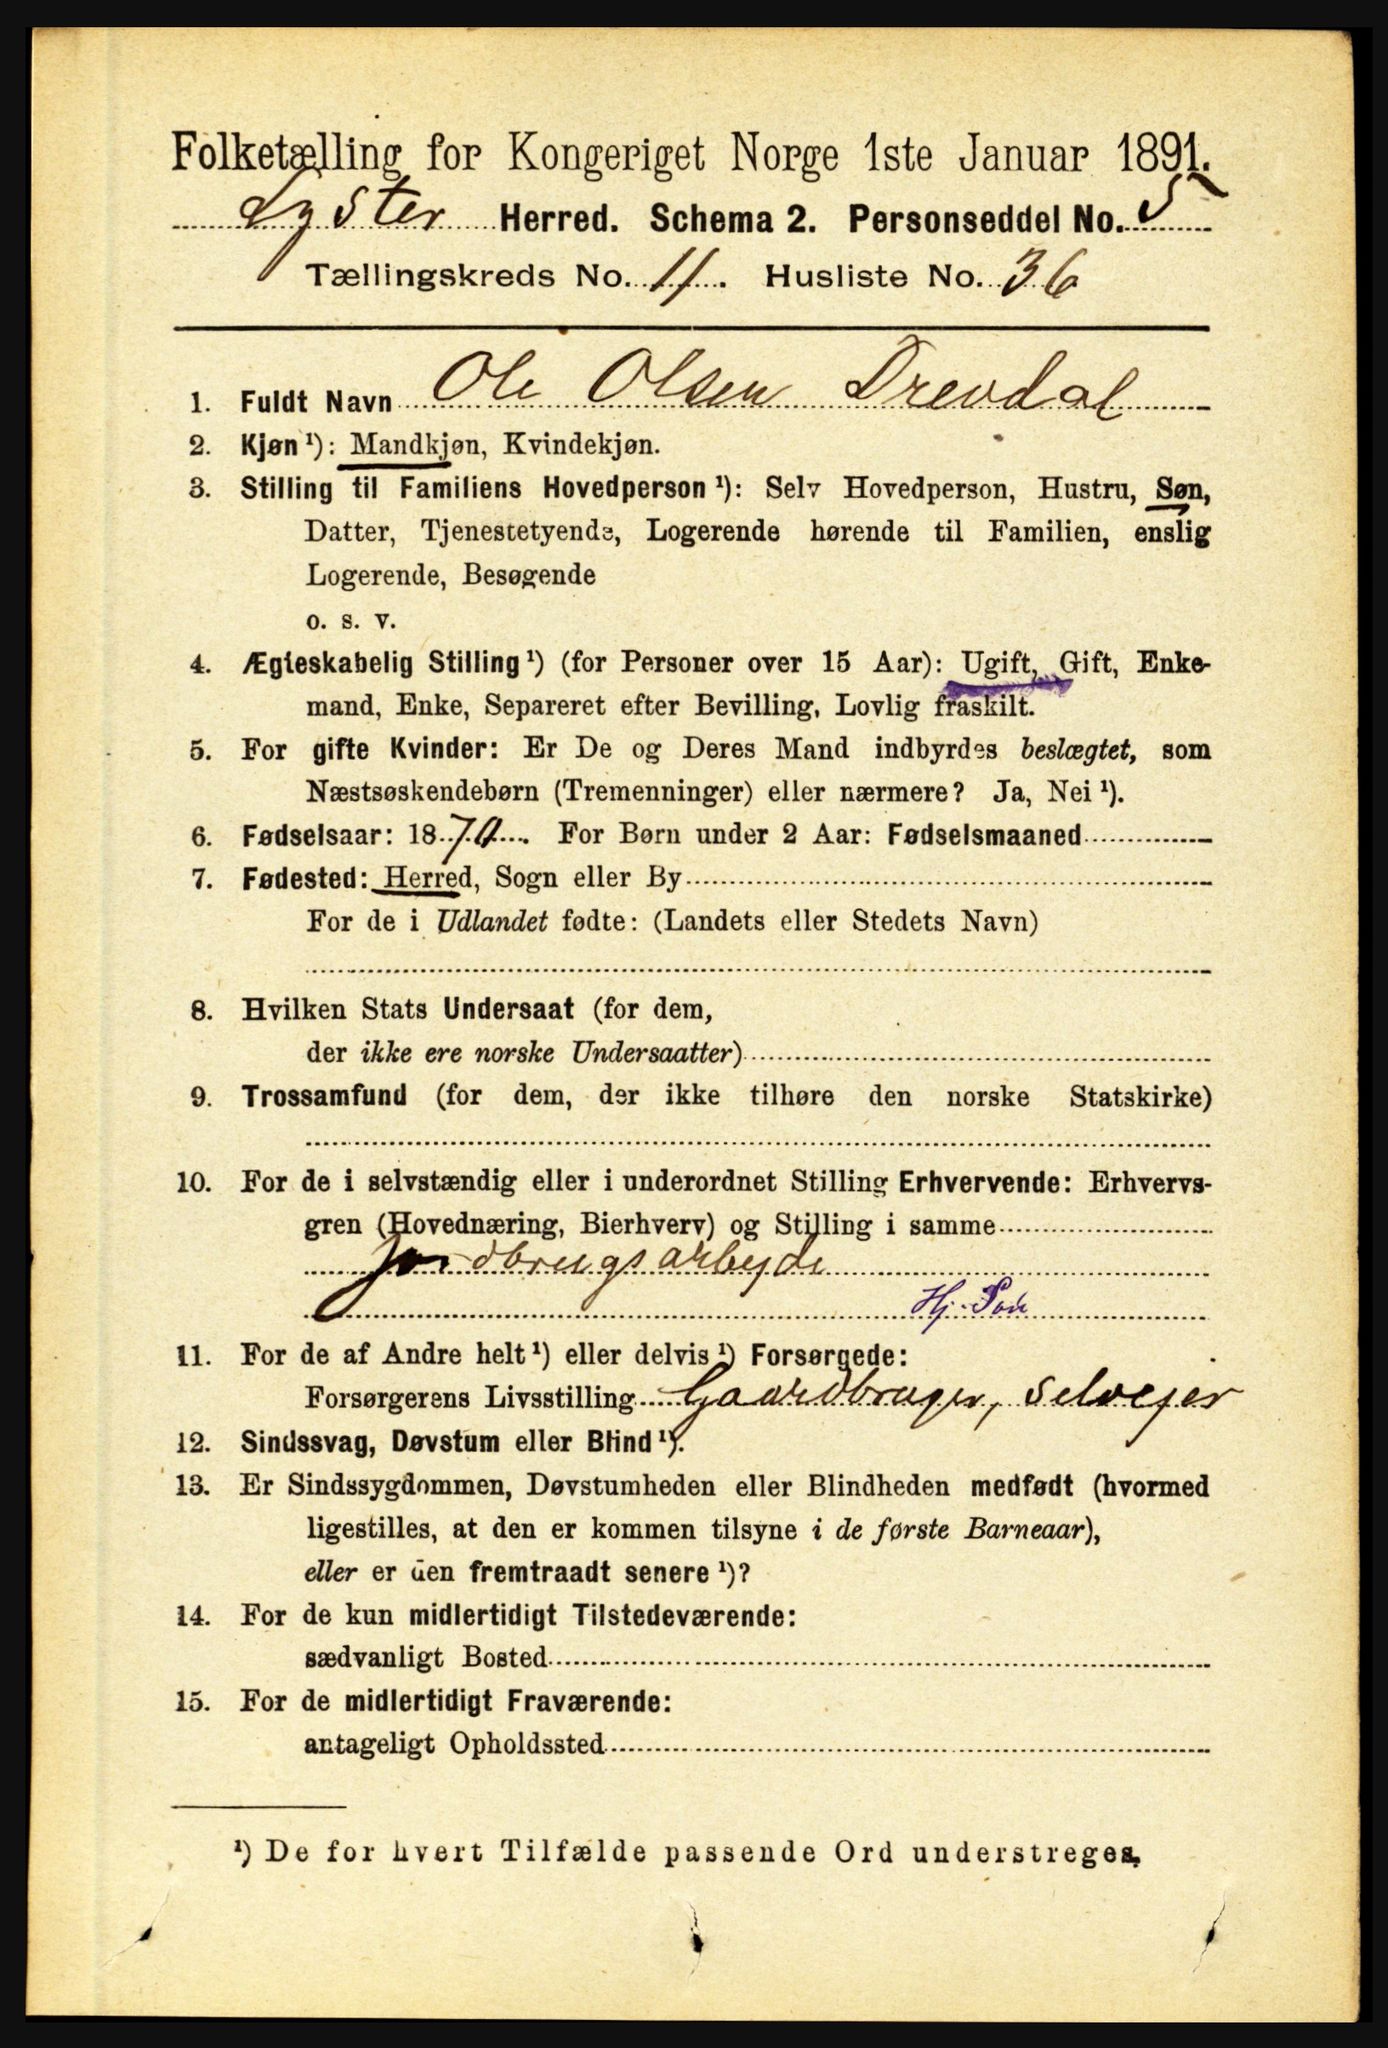 Folketælling for Kongeriget Norge 1ste Januar 1891.
Lyster Herred. Schema 2. Personseddel No. 5
Tællingskreds No. 11. Husliste No. 36
1. Fuldt Navn Ole Olsen Drevdal
2. Kjøn¹): Mandkjøn, Kvindekjøn.
3. Stilling til Familiens Hovedperson¹): Selv Hovedperson, Hustru, Søn,
Datter, Tjenestetyende, Logerende hørende til Familien, enslig
Logerende, Besøgende
o. s. v.
4. Ægteskabelig Stilling¹) (for Personer over 15 Aar): Ugift, Gift, Enke-
mand, Enke, Separeret efter Bevilling, Lovlig fraskilt.
5. For gifte Kvinder: Er De og Deres Mand indbyrdes beslægtet, som
Næstsøskendebørn (Tremenninger) eller nærmere? Ja, Nei¹).
6. Fødselsaar: 1870. For Børn under 2 Aar: Fødselsmaaned
7. Fødested: Herred, Sogn eller By
For de i Udlandet fødte: (Landets eller Stedets Navn)
8. Hvilken Stats Undersaat (for dem,
der ikke ere norske Undersaatter)
9. Trossamfund (for dem, der ikke tilhøre den norske Statskirke)
10. For de i selvstændig eller i underordnet Stilling Erhvervende: Erhvervs-
gren (Hovednæring, Bierhverv) og Stilling i samme
Jordbrugsarbeyde
Hj. Søn
11. For de af Andre helt¹) eller delvis¹) Forsørgede:
Forsørgerens Livsstilling Gaardbruger, Selvejer
12. Sindssvag, Døvstum eller Blind¹).
13. Er Sindssygdommen, Døvstumheden eller Blindheden medfødt (hvormed
ligestilles, at den er kommen tilsyne i de første Barneaar),
eller er den fremtraadt senere¹)?
14. For de kun midlertidigt Tilstedeværende:
sædvanligt Bosted
15. For de midlertidigt Fraværende:
antageligt Opholdssted
¹) De for hvert Tilfælde passende Ord understreges.